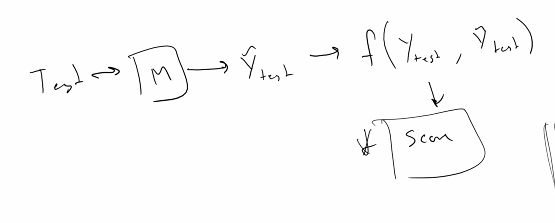 Test → M → Ŷtest → f(Ytest, Ŷtest)
↓
Score